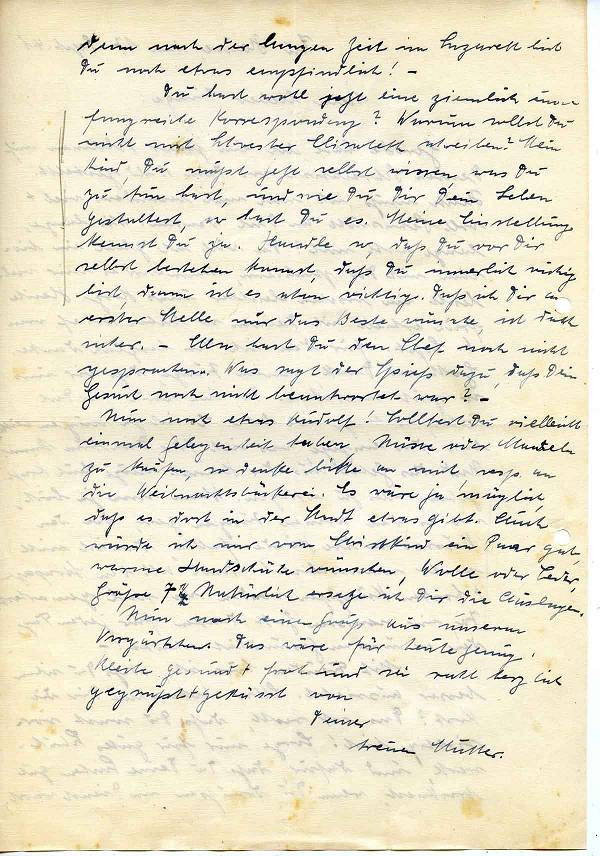 denn nach der langen Zeit im Lazarett bist
Du noch etwas empfindlich! –
Du hast wohl jetzt eine ziemlich um-
fangreiche Korrespondenz? Warum sollst Du
nicht mit Schwester Elisabeth schreiben? Mein
Kind, Du mußt jetzt selbst wissen, was Du
zu tun hast, und wie Du Dir Dein Leben
gestaltest, so hast Du es. Meine Einstellung
kennst Du ja. Handle so, daß Du vor Dir
selbst bestehen kannst, daß Du innerlich ruhig
bist, dann ist es schon richtig. Daß ich Dir an
erster Stelle nur das Beste wünsche, ist doch
sicher. – Also hast Du den Chef noch nicht
gesprochen. Was sagt der Spieß dazu, daß Dein
Gesuch noch nicht beantwortet war? –
Nun noch etwas Rudolf! Solltest Du vielleicht
einmal Gelegenheit haben, Nüsse oder Mandeln
zu kaufen, so denke bitte an mich, resp. an
die Weihnachtsbäckerei. Es wäre ja möglich,
daß es dort in der Stadt etwas gibt. Auch
würde ich mir vom Christkind ein Paar gute,
warme Handschuhe wünschen, Wolle oder Leder,
Größe 7 ½ Natürlich ersetze ich Dir die Auslagen.
Nun noch einen Gruß aus unserm
Vorgärtchen. Das wäre für heute genug.
Bleibe gesund + froh und sei recht herzlich
gegrüßt + geküsst von
Deiner
treuen Mutter.